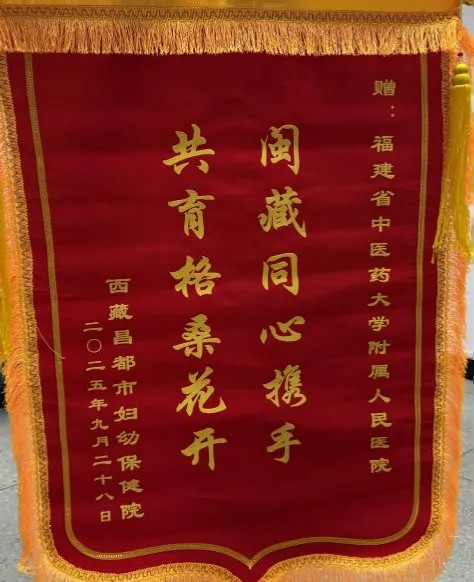 赠：福建省中医药大学附属人民医院
闽藏同心携手
共育格桑花开
西藏昌都市妇幼保健院
二〇二五年九月二十八日